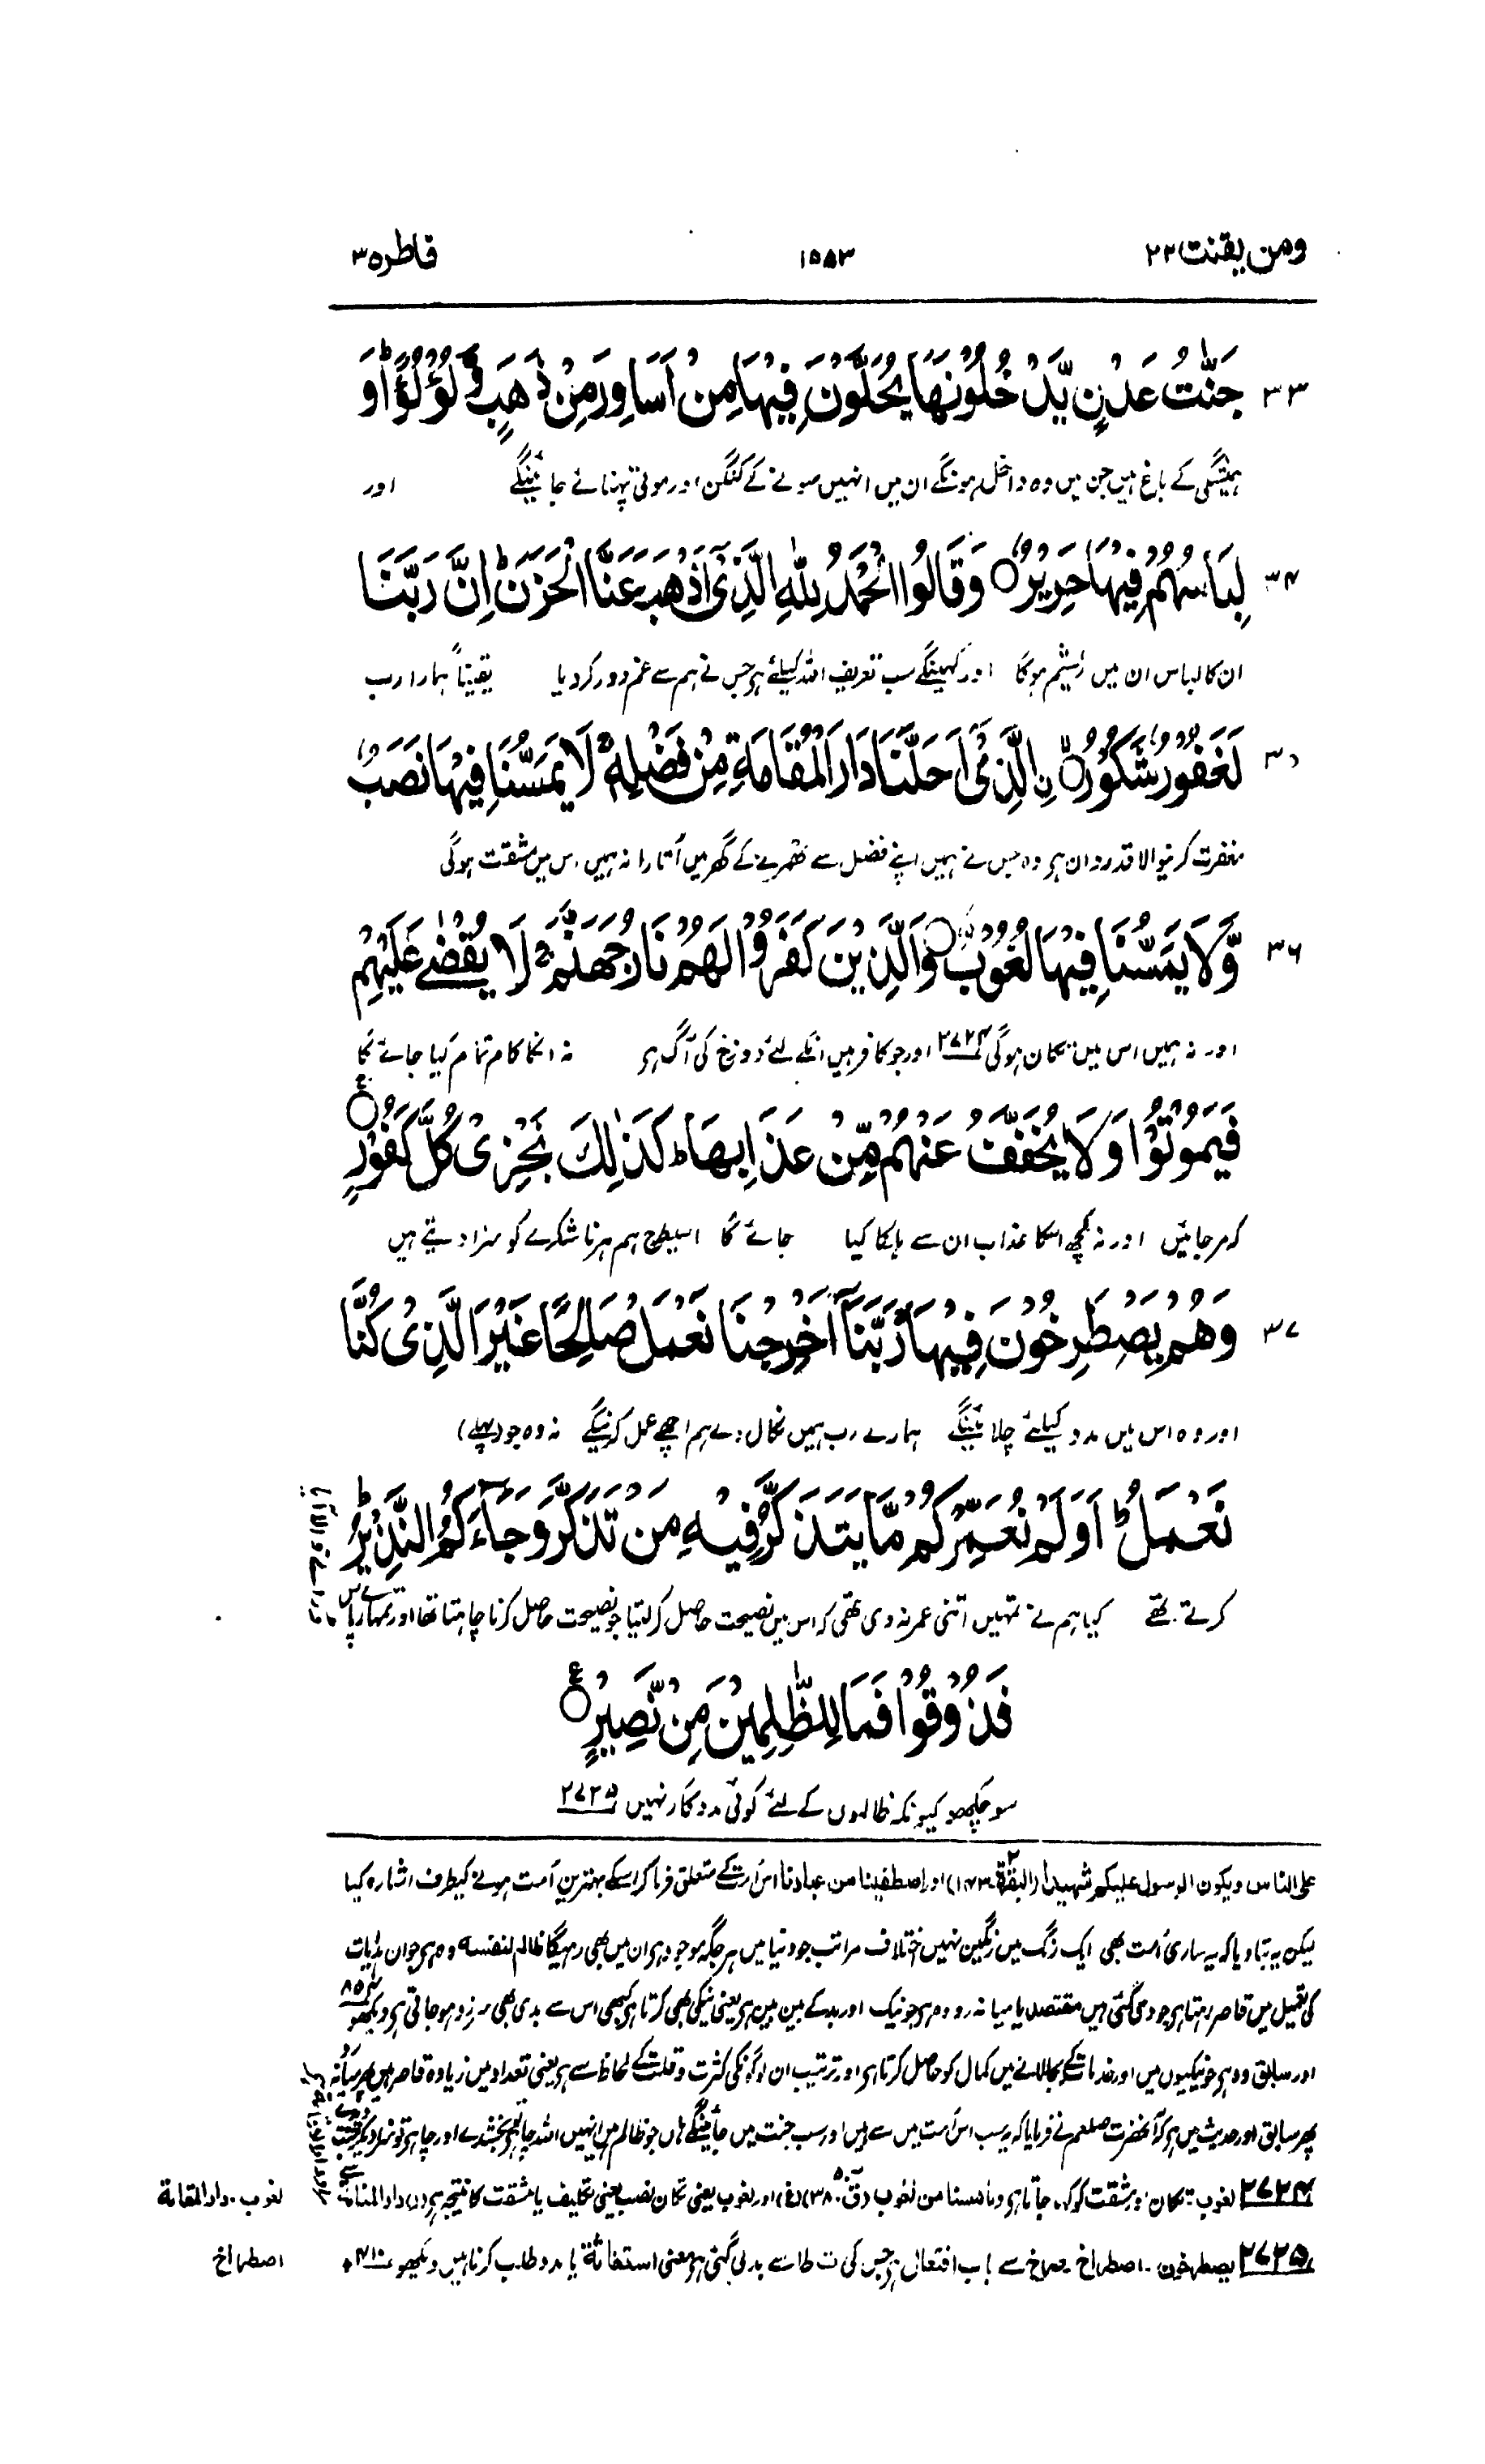 ومن یقنت ۲۲
۱۵۵۳
فاطر ۳۵
۳۳ جَنّٰتُ عَدْنٍ يَّدْخُلُوْنَهَا يُحَلَّوْنَ فِيْهَا مِنْ اَسَاوِرَ مِنْ ذَهَبٍ وَّلُؤْلُؤًا ۚ وَ
ہمیشگی کے باغ ہیں جن میں وہ داخل ہونگے ان میں انہیں سونے کے کنگن اور موتی پہنائے جائینگے اور
۳۴ لِبَاسُهُمْ فِيْهَا حَرِيْرٌ ○ وَقَالُوا الْحَمْدُ لِلّٰهِ الَّذِيْۤ اَذْهَبَ عَنَّا الْحَزَنَ ؕ اِنَّ رَبَّنَا
ان کا لباس ان میں ریشم ہوگا اور کہینگے سب تعریف اللہ کیلئے ہے جس نے ہم سے غم دور کر دیا یقیناً ہمارا رب
۳۵ لَغَفُوْرٌ شَكُوْرٌ ۙ○ اِ۟لَّذِيْۤ اَحَلَّنَا دَارَ الْمُقَامَةِ مِنْ فَضْلِهٖ ۚ لَا يَمَسُّنَا فِيْهَا نَصَبٌ
مغفرت کرنیوالا قدردان ہے وہ جس نے ہمیں اپنے فضل سے ٹھہرنے کے گھر میں اُتارا نہ ہمیں اس میں مشقت ہوگی
۳۶ وَّلَا يَمَسُّنَا فِيْهَا لُغُوْبٌ ○ وَالَّذِيْنَ كَفَرُوْا لَهُمْ نَارُ جَهَنَّمَ ۚ لَا يُقْضٰى عَلَيْهِمْ
اور نہ ہمیں اس میں تکان ہوگی ۲۷۲۴ اور جو کافر ہیں انکے لئے دوزخ کی آگ ہے نہ انکا کام تمام کیا جائے گا
فَيَمُوْتُوْا وَلَا يُخَفَّفُ عَنْهُمْ مِّنْ عَذَابِهَا ؕ كَذٰلِكَ نَجْزِيْ كُلَّ كَفُوْرٍ ○
کہ مر جائیں اور نہ کچھ اسکا عذاب ان سے ہلکا کیا جائے گا اسیطرح ہم ہر ناشکرے کو سزا دیتے ہیں
۳۷ وَهُمْ يَصْطَرِخُوْنَ فِيْهَا ۚ رَبَّنَاۤ اَخْرِجْنَا نَعْمَلْ صَالِحًا غَيْرَ الَّذِيْ كُنَّا
اور وہ اس میں مدد کیلئے چلائینگے ہمارے رب ہمیں نکال دے ہم اچھے عمل کرینگے نہ وہ جو (پہلے)
نَعْمَلُ ؕ اَوَلَمْ نُعَمِّرْكُمْ مَّا يَتَذَكَّرُ فِيْهِ مَنْ تَذَكَّرَ وَجَآءَكُمُ النَّذِيْرُ ؕ
کرتے تھے کیا ہم نے تمہیں اتنی عمر نہ دی تھی کہ اس میں نصیحت حاصل کر لیتا جو نصیحت حاصل کرنا چاہتا تھا اور تمہارے پاس ڈرانے والا آیا
فَذُوْقُوْا فَمَا لِلظّٰلِمِيْنَ مِنْ نَّصِيْرٍ ○
سو چکھو کیونکہ ظالموں کے لئے کوئی مددگار نہیں ۲۷۲۵
علی الناس ویکون الرسول علیکم شهیدا (البقرة ۲۔ ۱۴۳) اور اصطفینا من عبادنا اس اُمت کے متعلق فرما کر اسکے بہترین اُمت ہونے کیطرف اشارہ کیا
لیکن یہ بتا دیا کہ یہ ساری اُمت بھی ایک رنگ میں رنگین نہیں اختلاف مراتب جو دنیا میں ہر جگہ موجود ہے ان میں بھی رہیگا ظالم لنفسه وہ ہے جو ان ہدایات
کی تعمیل میں قاصر رہتا ہے جو دی گئی ہیں مقتصد یا میانہ رو وہ ہے جو نیک اور بد کے بین بین ہے یعنی نیکی بھی کرتا ہے کبھی اس سے بدی بھی سرزد ہو جاتی ہے دیکھو
اور سابق وہ ہے جو نیکیوں میں اور خدمات کے بجالانے میں کمال کو حاصل کرتا ہے اور ترتیب ان لوگونکی کثرت وقلت کے لحاظ سے ہے یعنی تعداد میں زیادہ قاصر ہیں پھر میانہ رو
پھر سابق اور حدیث میں ہے کہ آنحضرت صلعم نے فرمایا کہ یہ سب اس اُمت میں سے ہیں اور سب جنت میں جائینگے ہاں جو ظالم ہیں انہیں اللہ چاہے تو بخشدے اور چاہے تو سزا دیکر جنت
۲۷۲۴ لغوب۔ تکان اور مشقت کو کہا جاتا ہے وما مسنا من لغوب (ق ۵۰۔ ۳۸) (غ) اور لغوب یعنی تکان نصب یعنی تکلیف یا مشقت کا نتیجہ ہے (ر)
لغوب۔ دار المقامة
۲۷۲۵ یصطرخون۔ اصطراخ۔ صراخ سے باب افتعال ہے جس کی ت ط سے بدلی گئی ہے معنی استغاثة یا مدد طلب کرنا ہیں دیکھو
اصطراخ